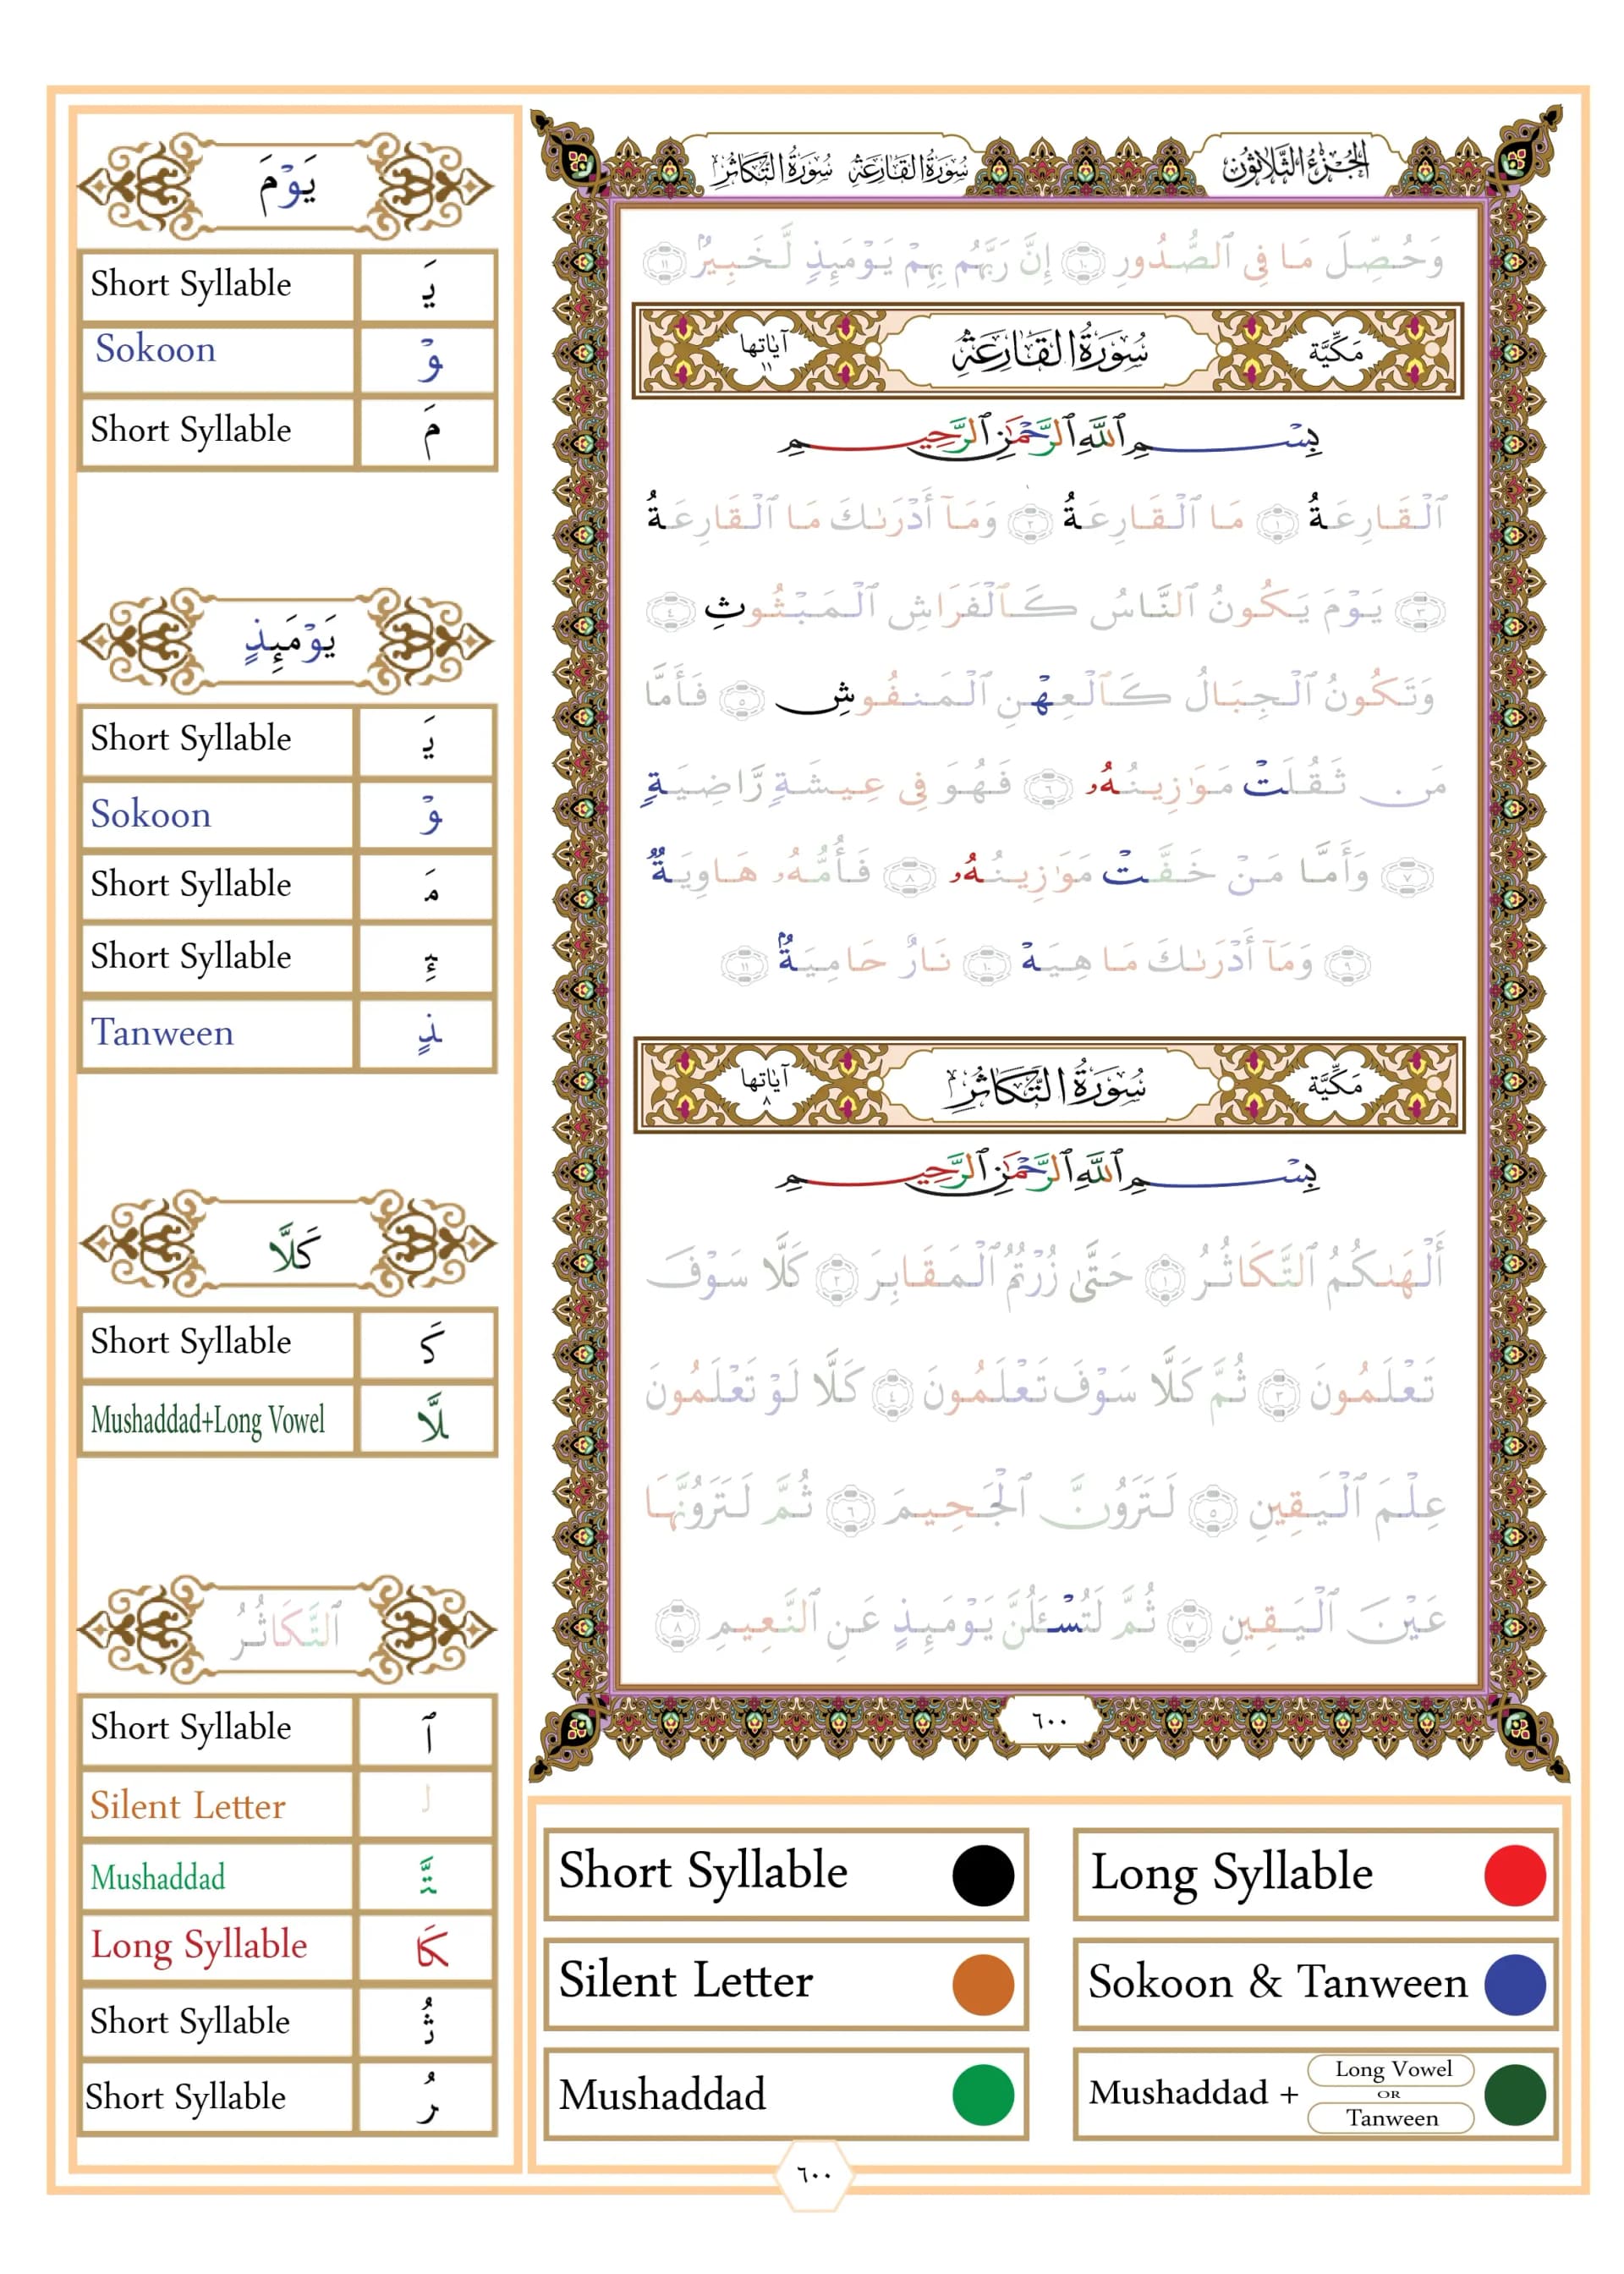 الجزء الثلاثون
سورة القارعة سورة التكاثر
وَحُصِّلَ مَا فِى ٱلصُّدُورِ ١٠ إِنَّ رَبَّهُم بِهِمْ يَوْمَئِذٍ لَّخَبِيرٌۢ ١١
مَكِّيَّة
سُورَةُ القَارِعَةِ
آياتها ١١
بِسْمِ ٱللَّهِ ٱلرَّحْمَٰنِ ٱلرَّحِيمِ
ٱلْقَارِعَةُ ١ مَا ٱلْقَارِعَةُ ٢ وَمَآ أَدْرَىٰكَ مَا ٱلْقَارِعَةُ
٣ يَوْمَ يَكُونُ ٱلنَّاسُ كَٱلْفَرَاشِ ٱلْمَبْثُوثِ ٤
وَتَكُونُ ٱلْجِبَالُ كَٱلْعِهْنِ ٱلْمَنفُوشِ ٥ فَأَمَّا
مَن ثَقُلَتْ مَوَٰزِينُهُۥ ٦ فَهُوَ فِى عِيشَةٍ رَّاضِيَةٍ
٧ وَأَمَّا مَنْ خَفَّتْ مَوَٰزِينُهُۥ ٨ فَأُمُّهُۥ هَاوِيَةٌ
٩ وَمَآ أَدْرَىٰكَ مَا هِيَهْ ١٠ نَارٌ حَامِيَةٌۢ ١١
مَكِّيَّة
سُورَةُ التَّكَاثُرِ
آياتها ٨
بِسْمِ ٱللَّهِ ٱلرَّحْمَٰنِ ٱلرَّحِيمِ
أَلْهَىٰكُمُ ٱلتَّكَاثُرُ ١ حَتَّىٰ زُرْتُمُ ٱلْمَقَابِرَ ٢ كَلَّا سَوْفَ
تَعْلَمُونَ ٣ ثُمَّ كَلَّا سَوْفَ تَعْلَمُونَ ٤ كَلَّا لَوْ تَعْلَمُونَ
عِلْمَ ٱلْيَقِينِ ٥ لَتَرَوُنَّ ٱلْجَحِيمَ ٦ ثُمَّ لَتَرَوُنَّهَا
عَيْنَ ٱلْيَقِينِ ٧ ثُمَّ لَتُسْـَٔلُنَّ يَوْمَئِذٍ عَنِ ٱلنَّعِيمِ ٨
٦٠٠
يَوْمَ
Short Syllable يَ
Sokoon وْ
Short Syllable مَ
يَوْمَئِذٍ
Short Syllable يَ
Sokoon وْ
Short Syllable مَ
Short Syllable ئِ
Tanween ذٍ
كَلَّا
Short Syllable كَ
Mushaddad+Long Vowel لَّا
ٱلتَّكَاثُرُ
Short Syllable ٱ
Silent Letter ل
Mushaddad تَّ
Long Syllable كَا
Short Syllable ثُ
Short Syllable رُ
Short Syllable
Long Syllable
Silent Letter
Sokoon & Tanween
Mushaddad
Mushaddad + Long Vowel OR Tanween
٦٠٠